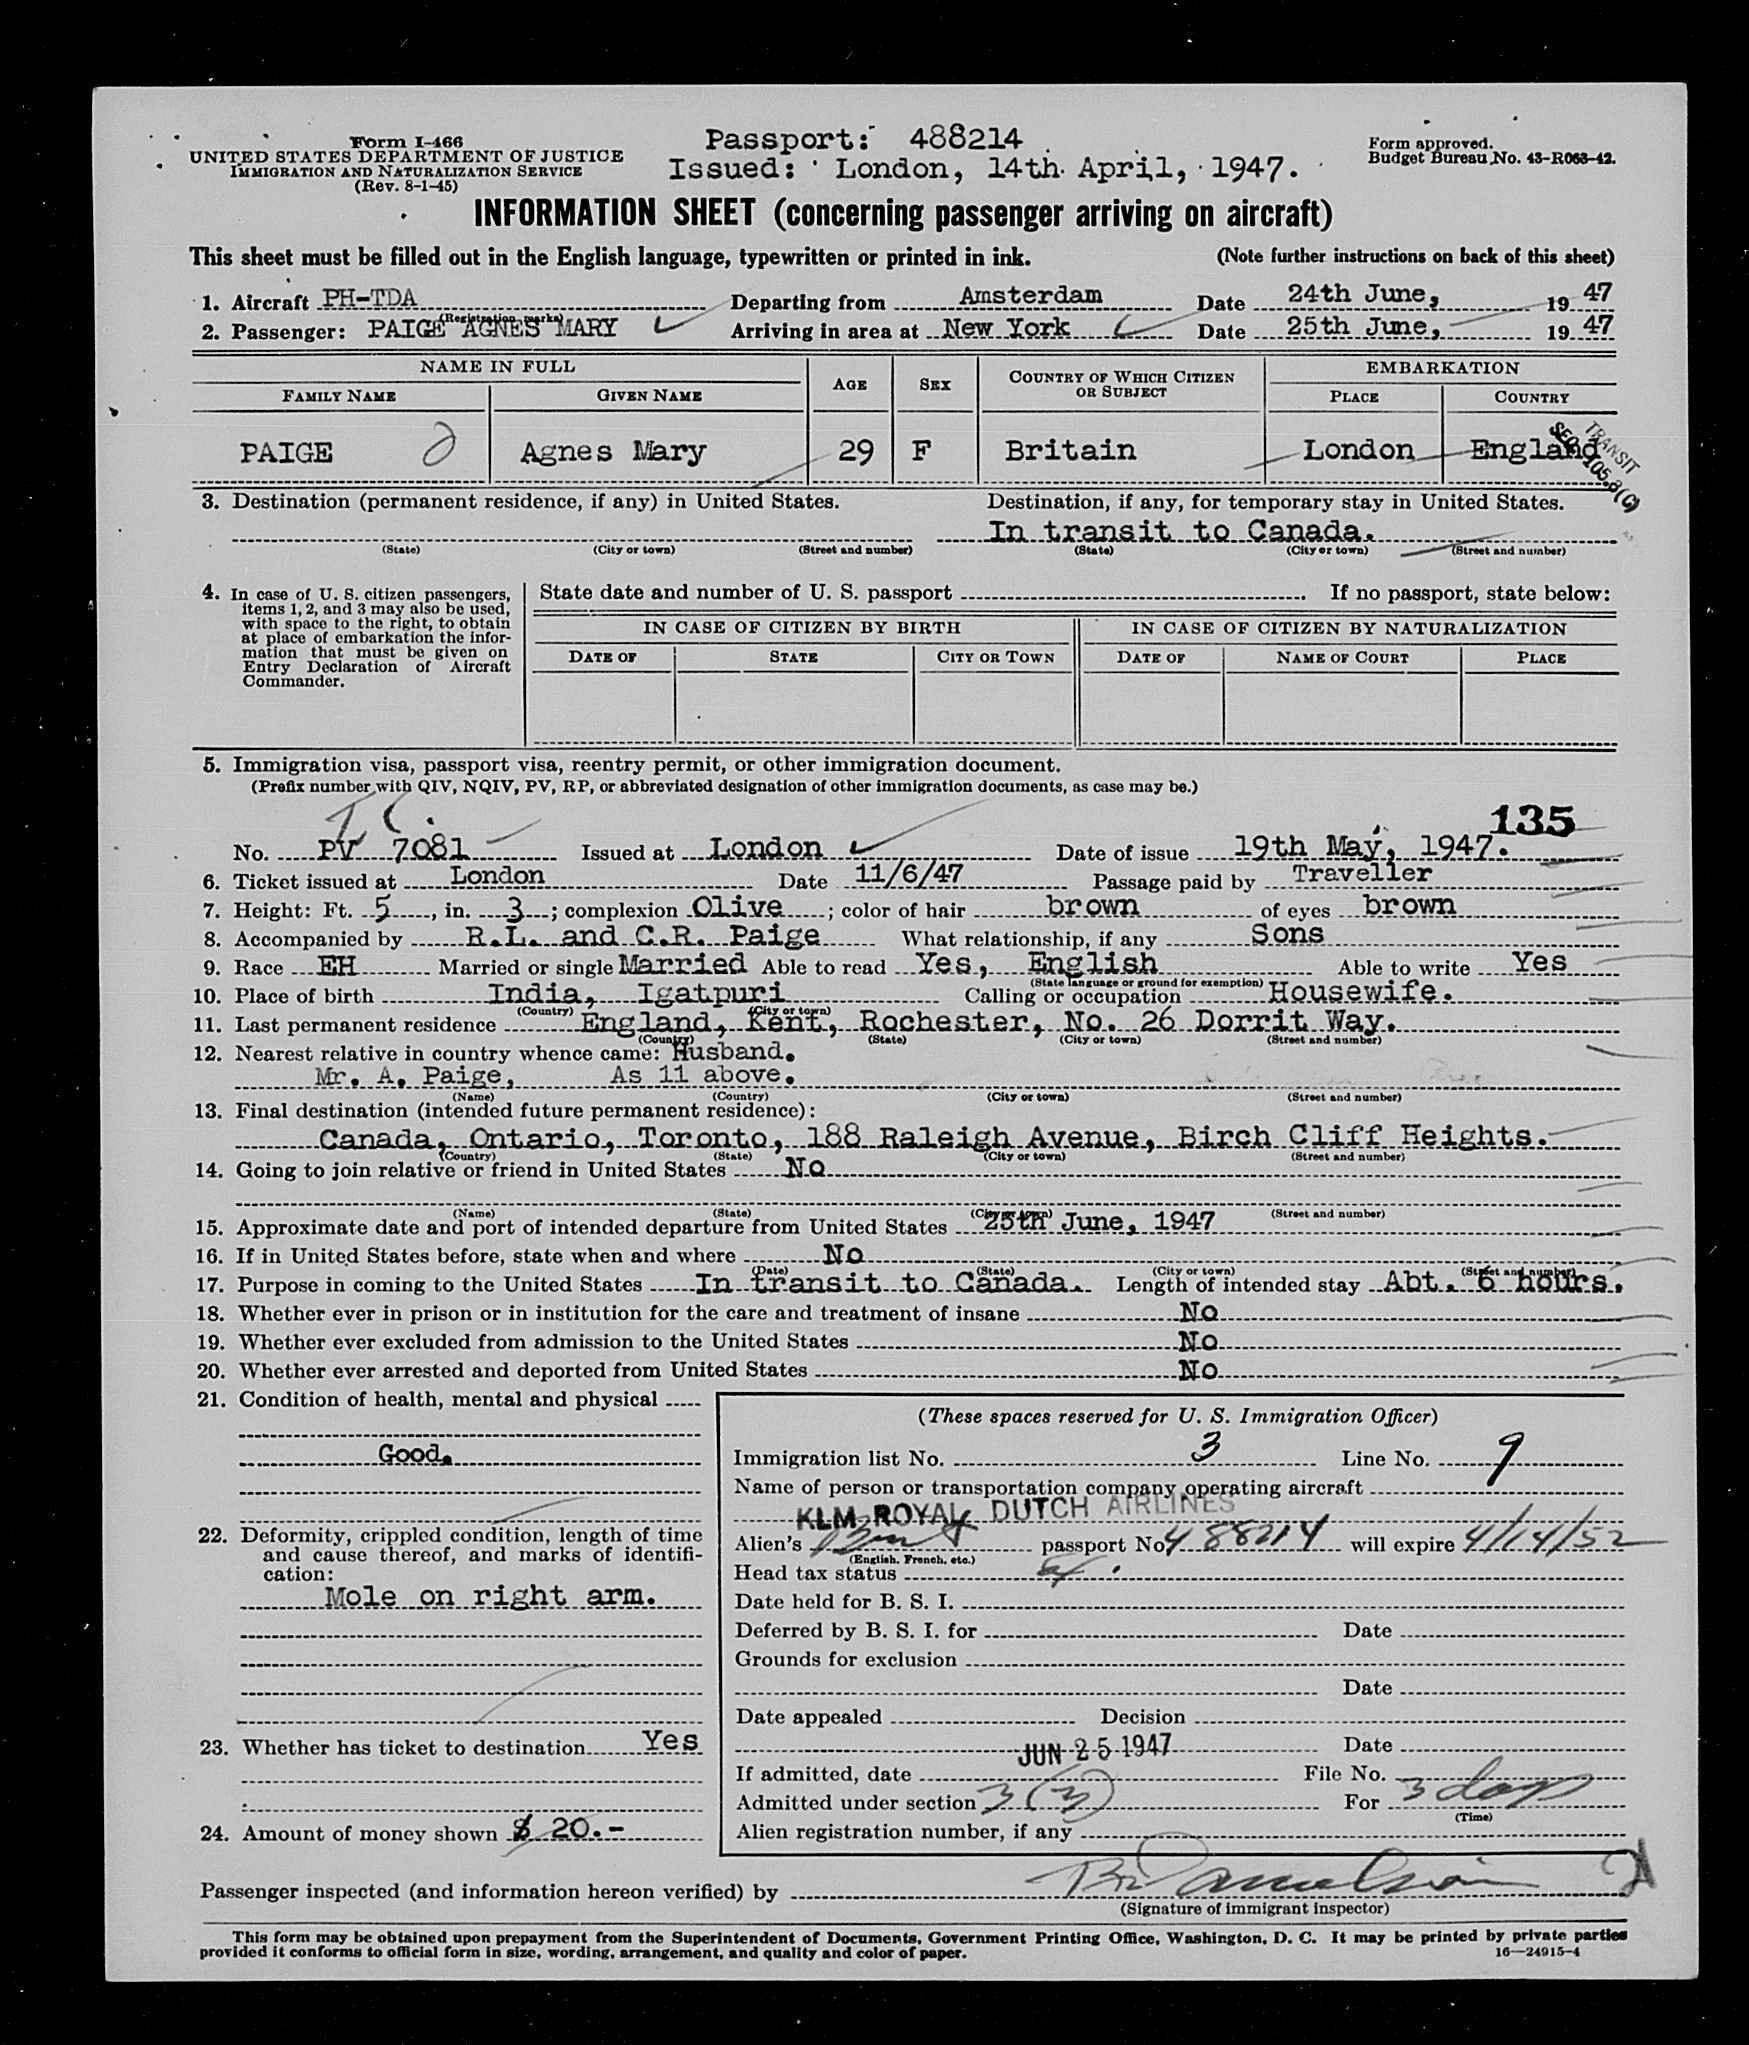 Form I-466
UNITED STATES DEPARTMENT OF JUSTICE
IMMIGRATION AND NATURALIZATION SERVICE
(Rev. 8-1-45)
Passport: 488214
Issued: London, 14th April, 1947.
Form approved.
Budget Bureau No. 43-R063-42.
INFORMATION SHEET (concerning passenger arriving on aircraft)
This sheet must be filled out in the English language, typewritten or printed in ink. (Note further instructions on back of this sheet)
1. Aircraft PH-TDA Departing from Amsterdam Date 24th June, 1947
(Registration marks)
2. Passenger: PAIGE AGNES MARY Arriving in area at New York Date 25th June, 1947
NAME IN FULL AGE SEX COUNTRY OF WHICH CITIZEN OR SUBJECT EMBARKATION
FAMILY NAME GIVEN NAME PLACE COUNTRY
PAIGE Agnes Mary 29 F Britain London England
TRANSIT
SEC. 105.3(C)
3. Destination (permanent residence, if any) in United States. Destination, if any, for temporary stay in United States.
In transit to Canada.
(State) (City or town) (Street and number) (State) (City or town) (Street and number)
4. In case of U. S. citizen passengers, items 1, 2, and 3 may also be used, with space to the right, to obtain at place of embarkation the information that must be given on Entry Declaration of Aircraft Commander.
State date and number of U. S. passport . If no passport, state below:
IN CASE OF CITIZEN BY BIRTH IN CASE OF CITIZEN BY NATURALIZATION
DATE OF STATE CITY OR TOWN DATE OF NAME OF COURT PLACE
5. Immigration visa, passport visa, reentry permit, or other immigration document.
(Prefix number with QIV, NQIV, PV, RP, or abbreviated designation of other immigration documents, as case may be.)
135
No. PV 7081 Issued at London Date of issue 19th May, 1947.
6. Ticket issued at London Date 11/6/47 Passage paid by Traveller
7. Height: Ft. 5, in. 3; complexion Olive; color of hair brown of eyes brown
8. Accompanied by R.L. and C.R. Paige What relationship, if any Sons
9. Race EH Married or single Married Able to read Yes, English Able to write Yes
(State language or ground for exemption)
10. Place of birth India, Igatpuri Calling or occupation Housewife.
(Country) (City or town)
11. Last permanent residence England, Kent, Rochester, No. 26 Dorrit Way.
(Country) (State) (City or town) (Street and number)
12. Nearest relative in country whence came: Husband.
Mr. A. Paige, As 11 above.
(Name) (Country) (City or town) (Street and number)
13. Final destination (intended future permanent residence):
Canada, Ontario, Toronto, 188 Raleigh Avenue, Birch Cliff Heights.
(Country) (State) (City or town) (Street and number)
14. Going to join relative or friend in United States No
(Name) (State) (City or town) (Street and number)
15. Approximate date and port of intended departure from United States 25th June, 1947
16. If in United States before, state when and where No
(Date) (State) (City or town) (Street and number)
17. Purpose in coming to the United States In transit to Canada. Length of intended stay Abt. 6 hours.
18. Whether ever in prison or in institution for the care and treatment of insane No
19. Whether ever excluded from admission to the United States No
20. Whether ever arrested and deported from United States No
21. Condition of health, mental and physical
Good.
22. Deformity, crippled condition, length of time and cause thereof, and marks of identification:
Mole on right arm.
23. Whether has ticket to destination Yes
24. Amount of money shown $ 20.-
(These spaces reserved for U. S. Immigration Officer)
Immigration list No. 3 Line No. 9
Name of person or transportation company operating aircraft
KLM ROYAL DUTCH AIRLINES
Alien's passport No. 488214 will expire 4/14/52
(English, French, etc.)
Head tax status
Date held for B. S. I.
Deferred by B. S. I. for Date
Grounds for exclusion
Date
Date appealed Decision
JUN 25 1947 Date
If admitted, date File No.
Admitted under section 3 (3) For 3 days
(Time)
Alien registration number, if any
Passenger inspected (and information hereon verified) by
(Signature of immigrant inspector)
This form may be obtained upon prepayment from the Superintendent of Documents, Government Printing Office, Washington, D. C. It may be printed by private parties
provided it conforms to official form in size, wording, arrangement, and quality and color of paper. 16—24915-4